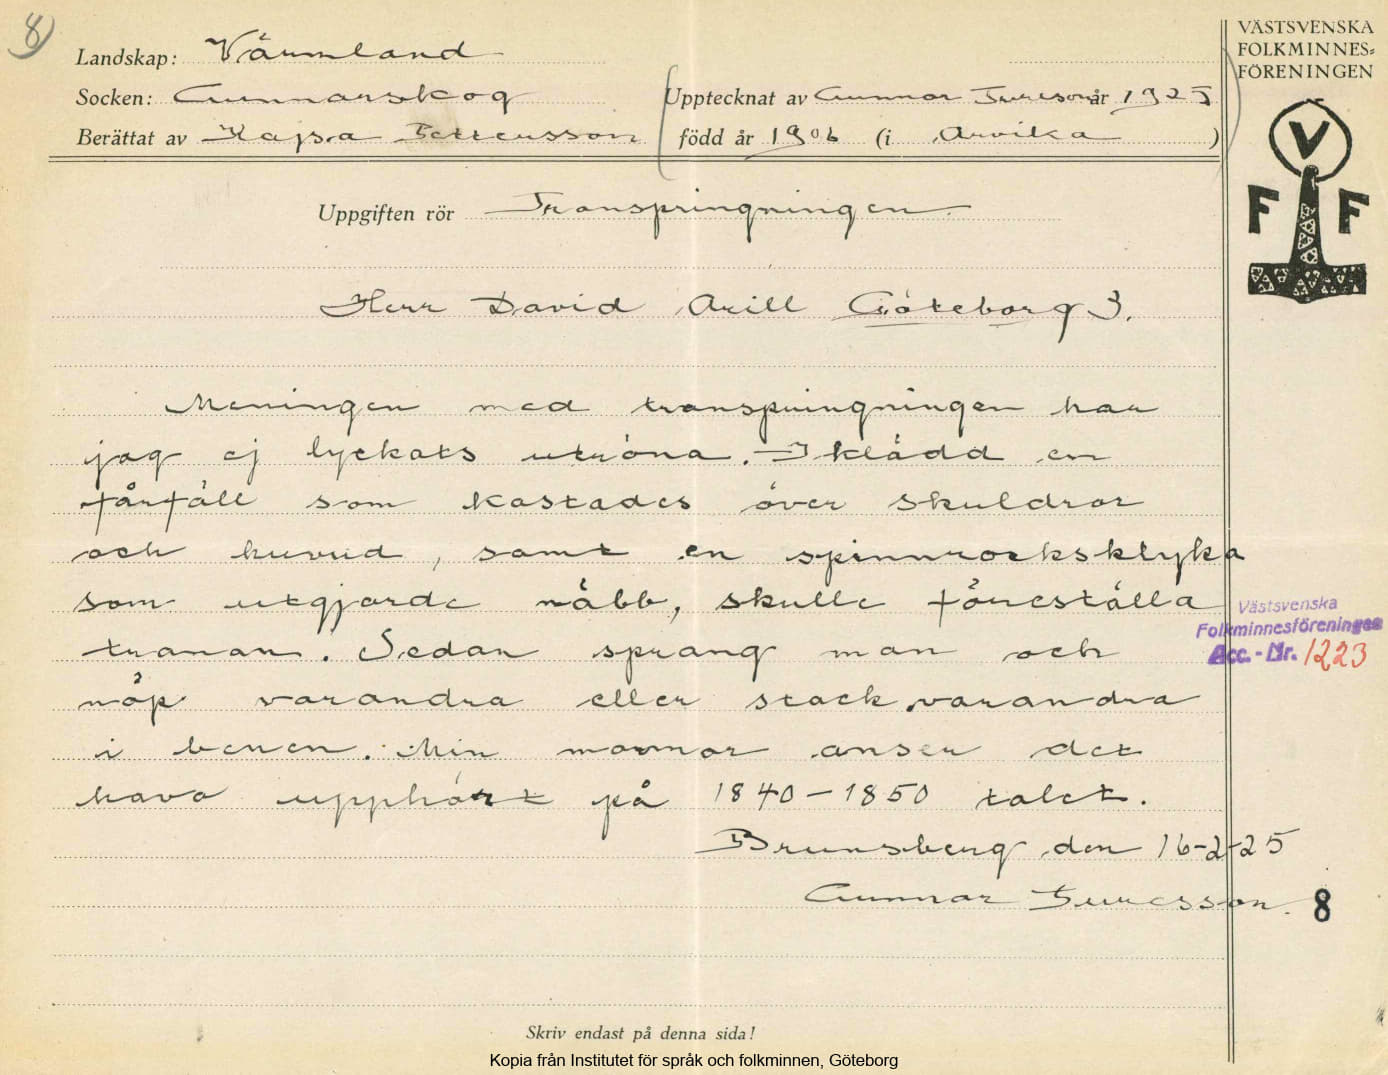 8
Landskap: Värmland
Socken: Gunnarskog
Berättat av Kajsa Pettersson
Upptecknat av Gunnar Turesson år 1925
född år 1906 (i Arvika)
VÄSTSVENSKA
FOLKMINNES=
FÖRENINGEN
V
F F
Uppgiften rör Transpringningen
Herr David Arill Göteborg 3.
Meningen med transpringningen har
jag ej lyckats utröna. Iklädd en
fårfäll som kastades över skuldror
och huvud, samt en spinnrocksklyka
som utgjorde näbb, skulle föreställa
tranan. Sedan sprang man och
nöp varandra eller stack varandra
i benen. Min mormor anser det
hava upphört på 1840-1850 talet.
Brunsberg den 16-2-25
Gunnar Turesson.
Västsvenska
Folkminnesföreningen
Acc.-Nr. 1223
8
Skriv endast på denna sida!
Kopia från Institutet för språk och folkminnen, Göteborg